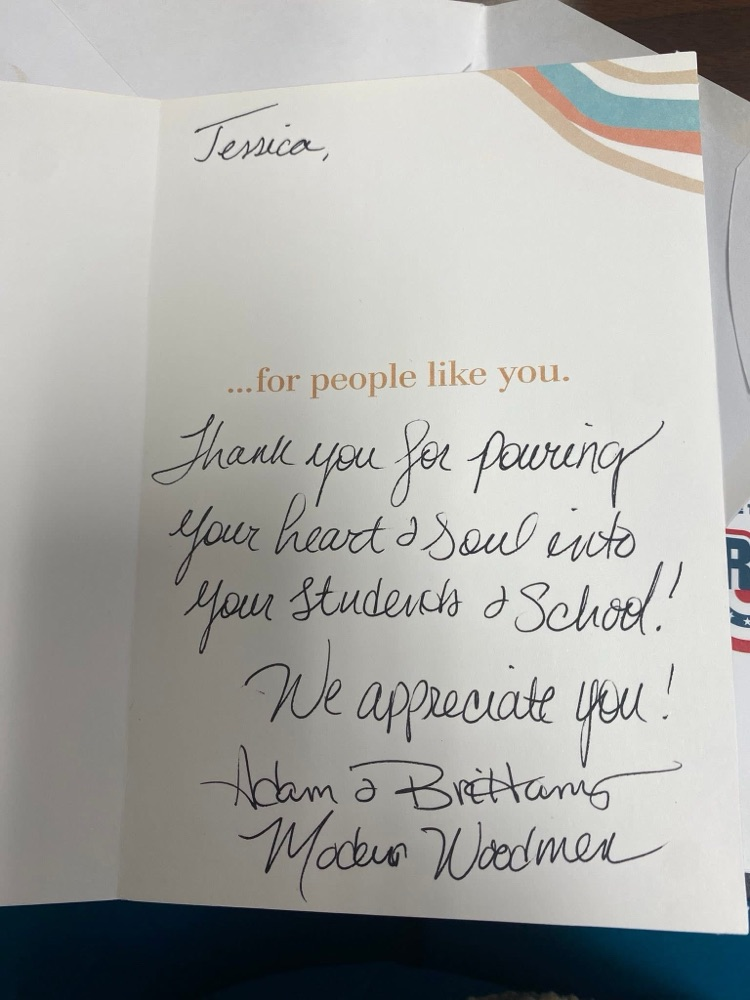 Jessica,
...for people like you.
Thank you for pouring
your heart & soul into
your students & School!
We appreciate you!
Adam & Brittany
Modern Woodmen
R